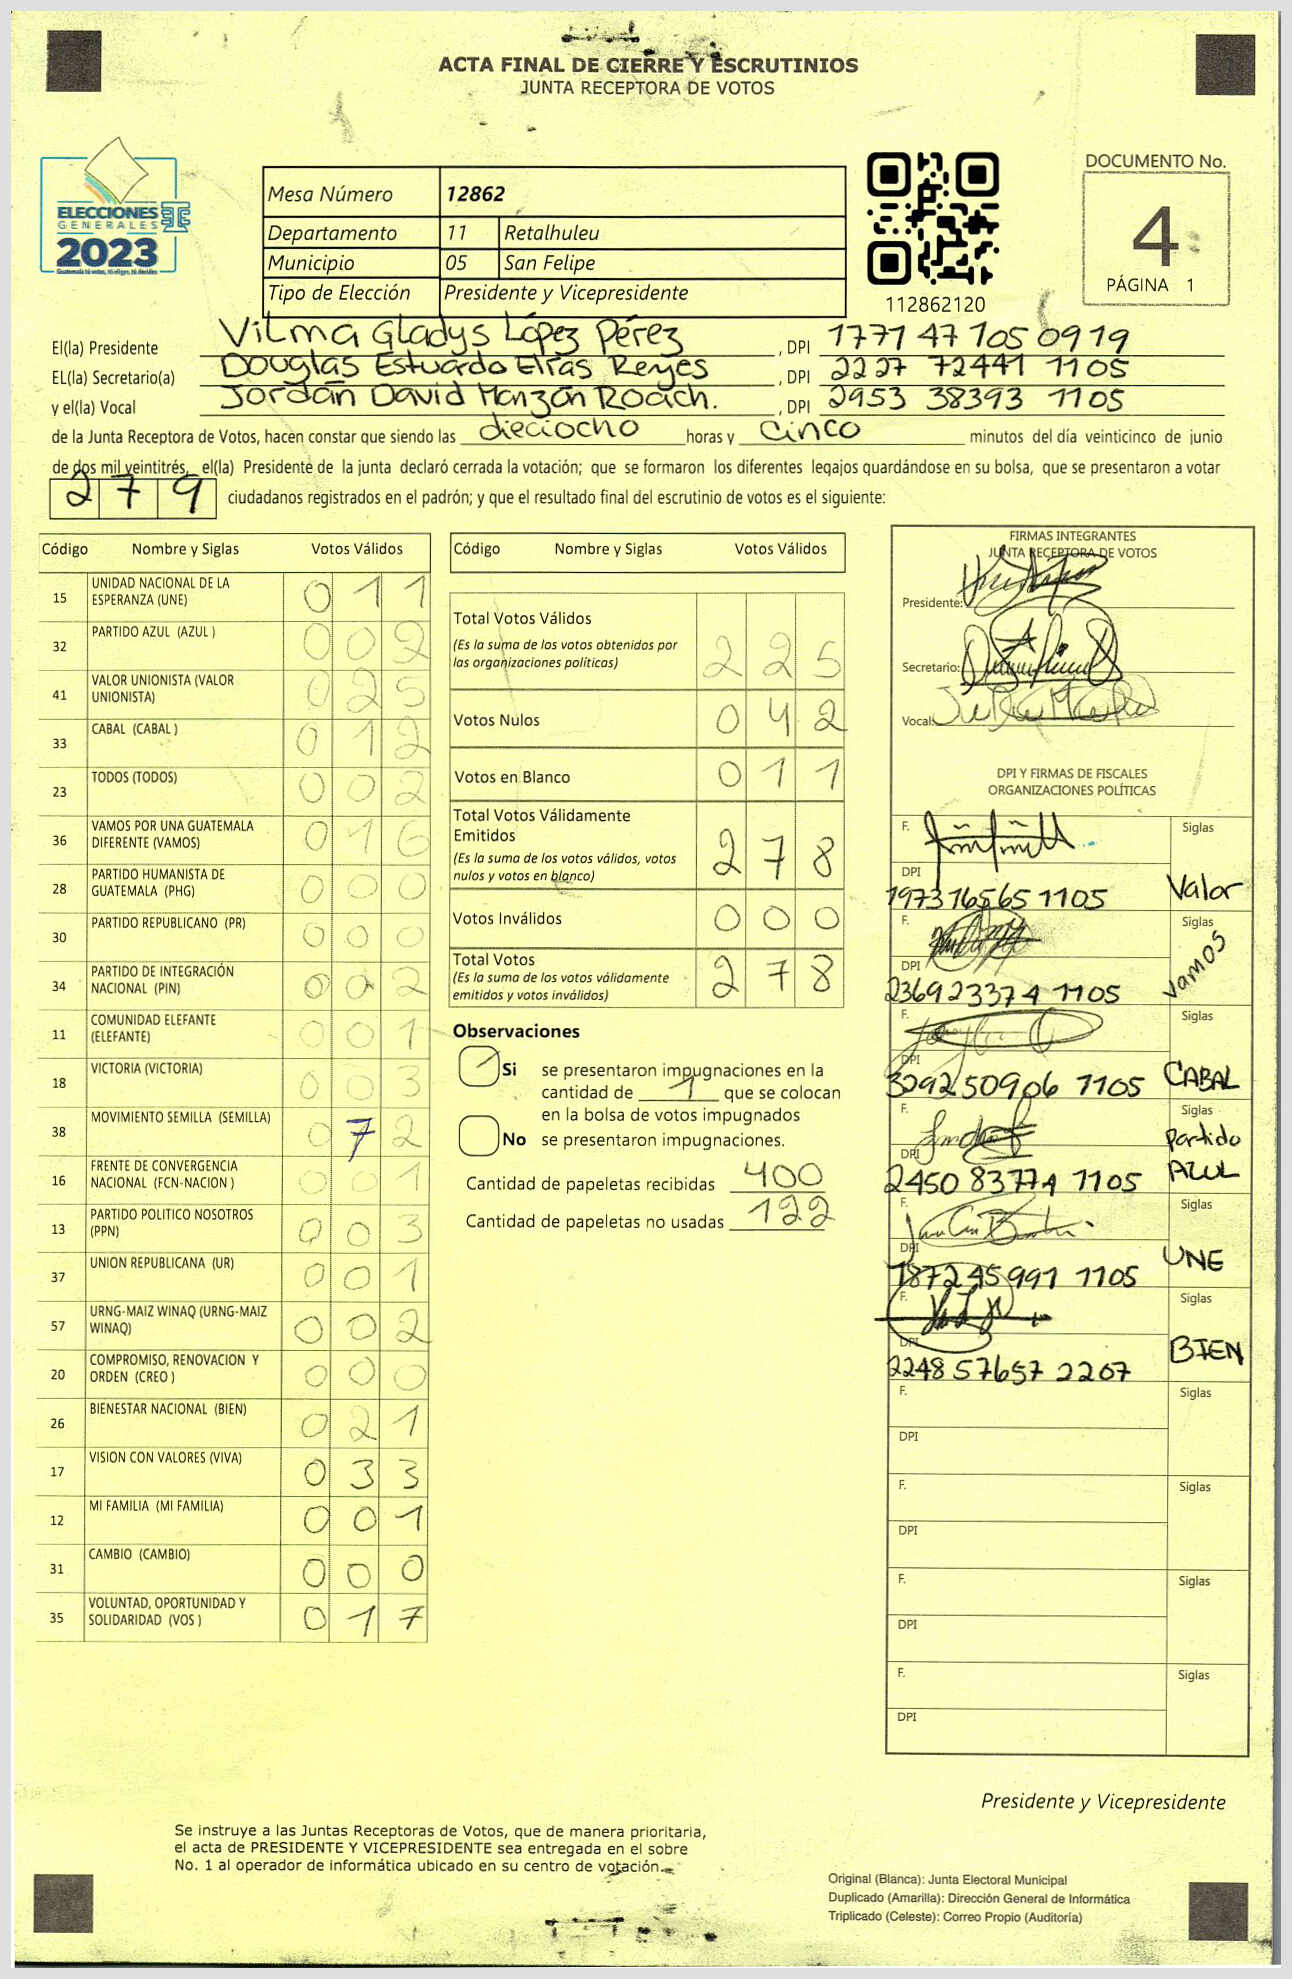 ACTA FINAL DE CIERRE Y ESCRUTINIOS
JUNTA RECEPTORA DE VOTOS
ELECCIONES
GENERALES
2023
Guatemala tú votas, tú eliges, tú decides
Mesa Número 12862
Departamento 11 Retalhuleu
Municipio 05 San Felipe
Tipo de Elección Presidente y Vicepresidente
112862120
DOCUMENTO No.
4
PÁGINA 1
El(la) Presidente Vilma Gladys López Pérez , DPI 1771 47105 0919
EL(la) Secretario(a) Douglas Estuardo Elías Reyes , DPI 2227 72441 1105
y el(la) Vocal Jordán David Monzón Roach. , DPI 2953 38393 1105
de la Junta Receptora de Votos, hacen constar que siendo las dieciocho horas y cinco minutos del día veinticinco de junio
de dos mil veintitrés, el(la) Presidente de la junta declaró cerrada la votación; que se formaron los diferentes legajos guardándose en su bolsa, que se presentaron a votar
279 ciudadanos registrados en el padrón; y que el resultado final del escrutinio de votos es el siguiente:
Código Nombre y Siglas Votos Válidos
15 UNIDAD NACIONAL DE LA ESPERANZA (UNE) 011
32 PARTIDO AZUL (AZUL ) 002
41 VALOR UNIONISTA (VALOR UNIONISTA) 025
33 CABAL (CABAL ) 012
23 TODOS (TODOS) 002
36 VAMOS POR UNA GUATEMALA DIFERENTE (VAMOS) 016
28 PARTIDO HUMANISTA DE GUATEMALA (PHG) 000
30 PARTIDO REPUBLICANO (PR) 000
34 PARTIDO DE INTEGRACIÓN NACIONAL (PIN) 002
11 COMUNIDAD ELEFANTE (ELEFANTE) 001
18 VICTORIA (VICTORIA) 003
38 MOVIMIENTO SEMILLA (SEMILLA) 072
16 FRENTE DE CONVERGENCIA NACIONAL (FCN-NACION ) 001
13 PARTIDO POLITICO NOSOTROS (PPN) 003
37 UNION REPUBLICANA (UR) 001
57 URNG-MAIZ WINAQ (URNG-MAIZ WINAQ) 002
20 COMPROMISO, RENOVACION Y ORDEN (CREO ) 000
26 BIENESTAR NACIONAL (BIEN) 021
17 VISION CON VALORES (VIVA) 033
12 MI FAMILIA (MI FAMILIA) 001
31 CAMBIO (CAMBIO) 000
35 VOLUNTAD, OPORTUNIDAD Y SOLIDARIDAD (VOS ) 017
Código Nombre y Siglas Votos Válidos
Total Votos Válidos 225
(Es la suma de los votos obtenidos por
las organizaciones políticas)
Votos Nulos 042
Votos en Blanco 011
Total Votos Válidamente
Emitidos 278
(Es la suma de los votos válidos, votos
nulos y votos en blanco)
Votos Inválidos 000
Total Votos 278
(Es la suma de los votos válidamente
emitidos y votos inválidos)
Observaciones
Si se presentaron impugnaciones en la
cantidad de 1 que se colocan
en la bolsa de votos impugnados
No se presentaron impugnaciones.
Cantidad de papeletas recibidas 400
Cantidad de papeletas no usadas 122
FIRMAS INTEGRANTES
JUNTA RECEPTORA DE VOTOS
Presidente:
Secretario:
Vocal:
DPI Y FIRMAS DE FISCALES
ORGANIZACIONES POLÍTICAS
F. Siglas
DPI 1973 76565 1105 Valor
F. Siglas
DPI 2369 23374 1105 Vamos
F. Siglas
DPI 3292 50906 1105 CABAL
F. Siglas
DPI 2450 83774 1105 Partido AZUL
F. Siglas
DPI 1872 45991 1105 UNE
F. Siglas
DPI 2248 57657 2207 BIEN
F. Siglas
DPI
F. Siglas
DPI
F. Siglas
DPI
F. Siglas
DPI
Presidente y Vicepresidente
Se instruye a las Juntas Receptoras de Votos, que de manera prioritaria,
el acta de PRESIDENTE Y VICEPRESIDENTE sea entregada en el sobre
No. 1 al operador de informática ubicado en su centro de votación.
Original (Blanca): Junta Electoral Municipal
Duplicado (Amarilla): Dirección General de Informática
Triplicado (Celeste): Correo Propio (Auditoría)